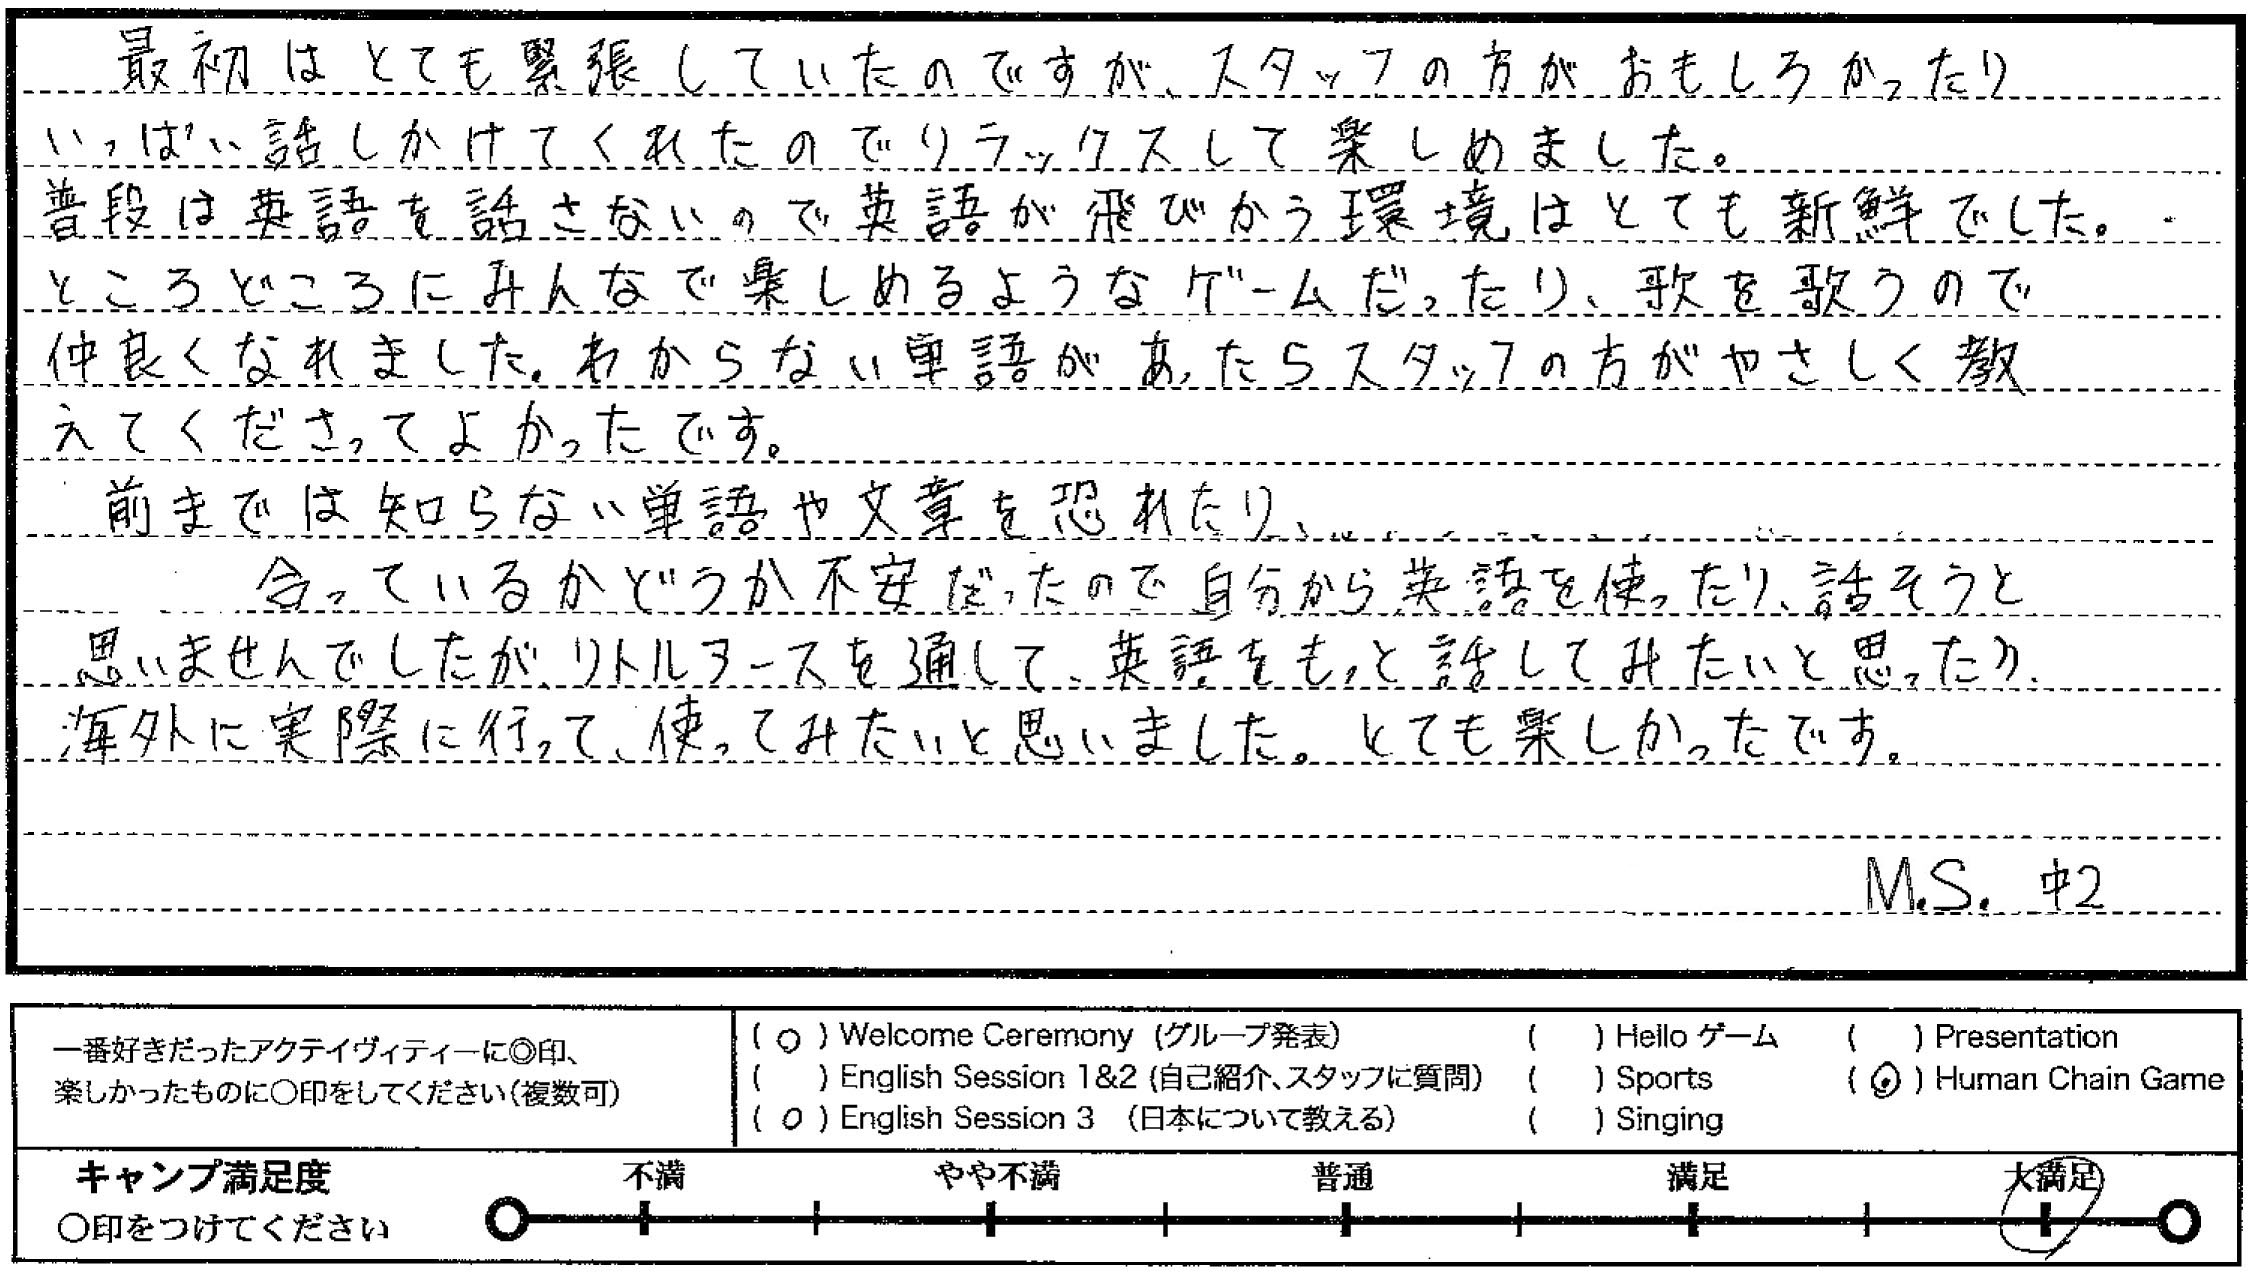 最初はとても緊張していたのですが、スタッフの方がおもしろかったり
いっぱい話しかけてくれたのでリラックスして楽しめました。
普段は英語を話さないので英語が飛びかう環境はとても新鮮でした。
ところどころにみんなで楽しめるようなゲームだったり、歌を歌うので
仲良くなれました。わからない単語があったらスタッフの方がやさしく教
えてくださってよかったです。
前までは知らない単語や文章を恐れたり、
合っているかどうか不安だったので自分から英語を使ったり、話そうと
思いませんでしたが、リトルヌースを通して、英語をもっと話してみたいと思ったり、
海外に実際に行って、使ってみたいと思いました。とても楽しかったです。
M.S. 中2
一番好きだったアクテイヴィティーに◎印、
楽しかったものに〇印をしてください(複数可)
( ○ ) Welcome Ceremony (グループ発表)
( ) English Session 1&2 (自己紹介、スタッフに質問)
( ○ ) English Session 3 (日本について教える)
( ) Hello ゲーム
( ) Sports
( ) Singing
( ) Presentation
( ◎ ) Human Chain Game
キャンプ満足度
〇印をつけてください
不満 やや不満 普通 満足 大満足